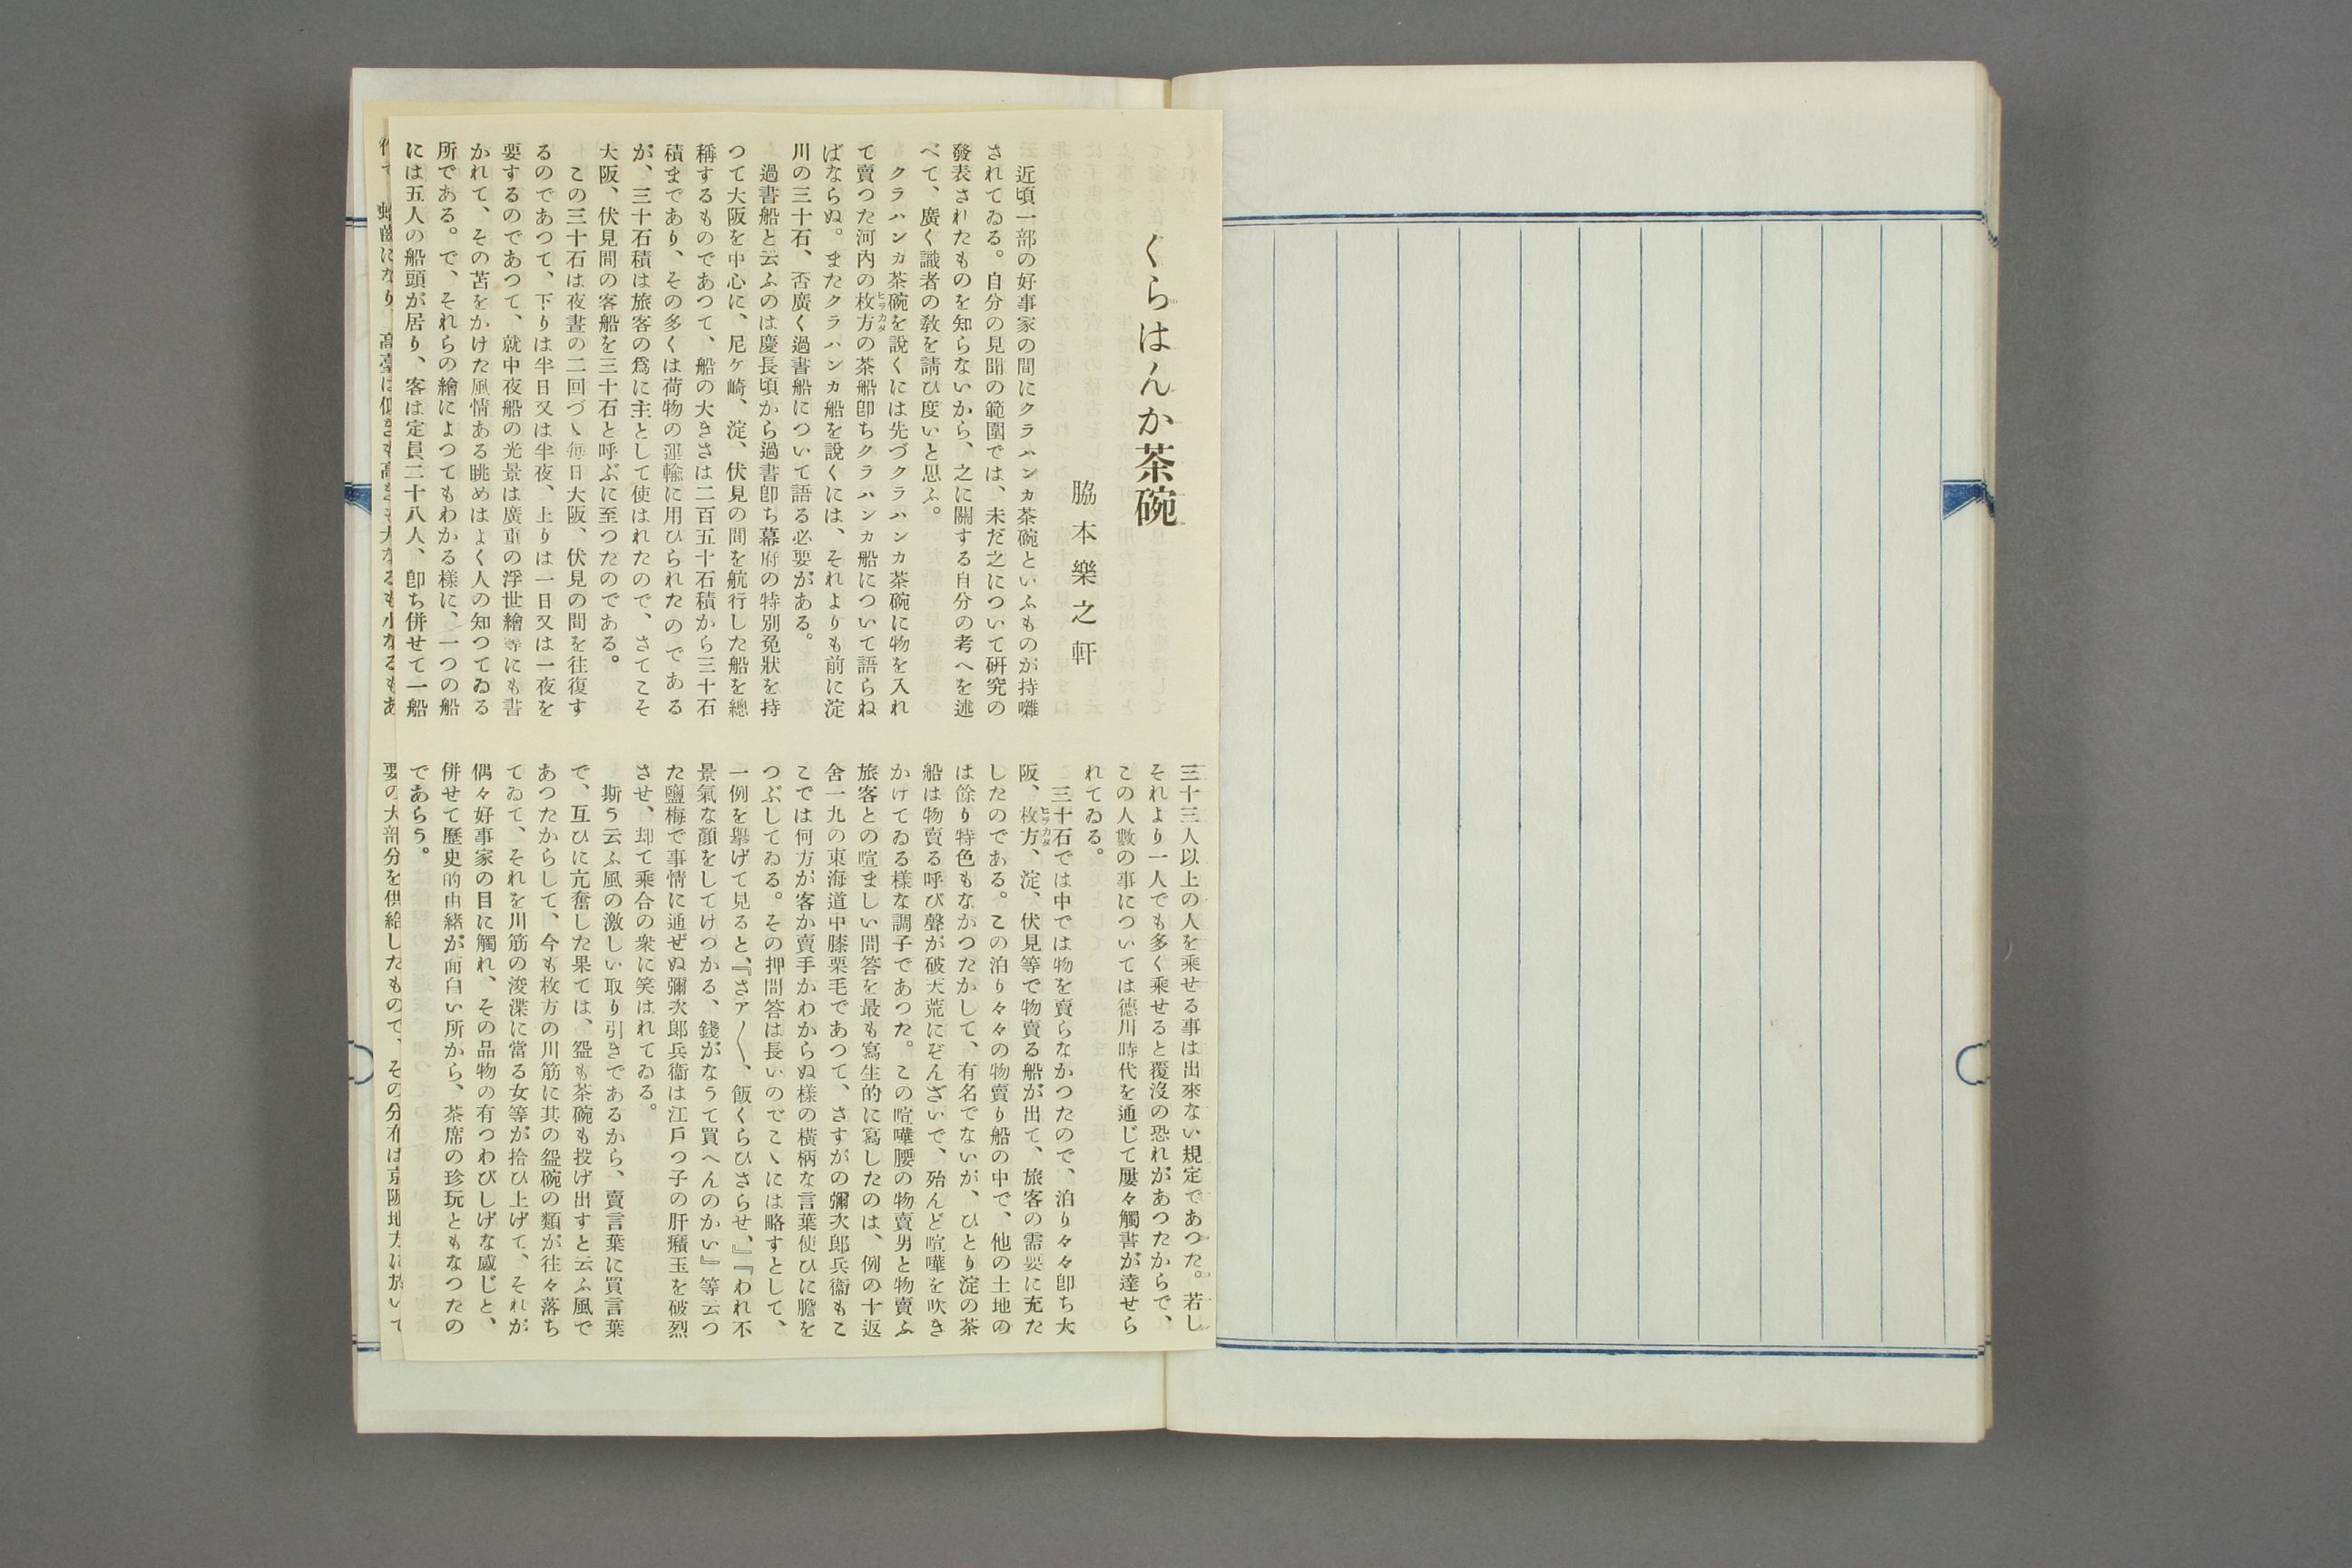 くらはんか茶碗
脇本樂之軒
近頃一部の好事家の間にクラハンカ茶碗といふものが持囃
されてゐる。自分の見聞の範圍では、未だ之について研究の
發表されたものを知らないから、之に關する自分の考へを述
べて、廣く識者の敎を請ひ度いと思ふ。
クラハンカ茶碗を說くには先づクラハンカ茶碗に物を入れ
て賣つた河內の枚方の茶船卽ちクラハンカ船について語らね
ヒラカタ
ばならぬ。またクラハンカ船を說くには、それよりも前に淀
川の三十石、否廣く過書船について語る必要がある。
過書船と云ふのは慶長頃から過書卽ち幕府の特別免狀を持
つて大阪を中心に、尼ケ崎、淀、伏見の間を航行した船を總
稱するものであつて、船の大きさは二百五十石積から三十石
積まであり、その多くは荷物の運輸に用ひられたのである
が、三十石積は旅客の爲に主として使はれたので、さてこそ
大阪、伏見間の客船を三十石と呼ぶに至つたのである。
この三十石は夜晝の二回づゝ每日大阪、伏見の間を往復す
るのであつて、下りは半日又は半夜、上りは一日又は一夜を
要するのであつて、就中夜船の光景は廣重の浮世繪等にも書
かれて、その苫をかけた風情ある眺めはよく人の知つてゐる
所である。で、それらの繪によつてもわかる樣に、一つの船
には五人の船頭が居り、客は定員二十八人、卽ち併せて一船
三十三人以上の人を乘せる事は出來ない規定であつた。若し
それより一人でも多く乘せると覆沒の恐れがあつたからで、
この人數の事については德川時代を通じて屢々觸書が達せら
れてゐる。
三十石では中では物を賣らなかつたので、泊り々々卽ち大
阪、枚方、淀、伏見等で物賣る船が出て、旅客の需要に充た
ヒラカタ
したのである。この泊り々々の物賣り船の中で、他の土地の
は餘り特色もなかつたかして、有名でないが、ひとり淀の茶
船は物賣る呼び聲が破天荒にぞんざいで、殆んど喧嘩を吹き
かけてゐる樣な調子であつた。この喧嘩腰の物賣男と物賣ふ
旅客との喧ましい問答を最も寫生的に寫したのは、例の十返
舍一九の東海道中膝栗毛であつて、さすがの彌次郎兵衞もこ
こでは何方が客か賣手かわからぬ樣の橫柄な言葉使ひに膽を
つぶしてゐる。その押問答は長いのでこゝには略すとして、
一例を擧げて見ると、『さァ〳〵、飯くらひさらせ、』『われ不
景氣な顏をしてけつかる、錢がなうて買へんのかい』等云つ
た鹽梅で事情に通ぜぬ彌次郎兵衞は江戶つ子の肝癪玉を破烈
させ、却て乘合の衆に笑はれてゐる。
斯う云ふ風の激しい取り引きであるから、賣言葉に買言葉
で、互ひに亢奮した果ては、盌も茶碗も投げ出すと云ふ風で
あつたからして、今も枚方の川筋に其の盌碗の類が往々落ち
てゐて、それを川筋の浚渫に當る女等が拾ひ上げて、それが
偶々好事家の目に觸れ、その品物の有つわびしげな感じと、
併せて歷史的由緖が面白い所から、茶席の珍玩ともなつたの
であらう。
要の大部分を供給したもので、その分布は京阪地方に於いて